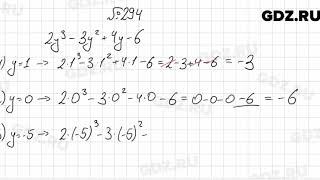 GDZ.RU
№294
2y³ - 3y² + 4y - 6
) y=1 → 2·1³ - 3·1² + 4·1 - 6 = 2-3+4-6 = -3
) y=0 → 2·0³ - 3·0² - 4·0 - 6 = 0-0-0-6 = -6
) y=-5 → 2·(-5)³ - 3·(-5)² -